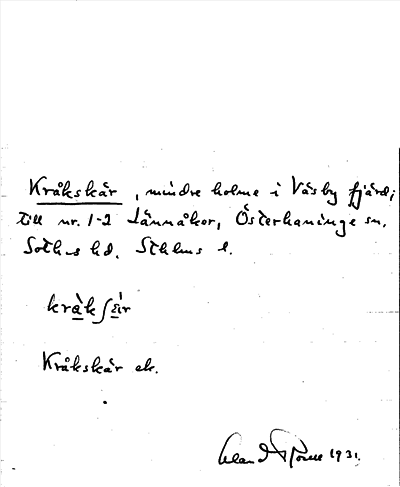 Kråkskär, mindre holme i Väsby fjärd;
till nr. 1-2 Lännåker, Österhaninge sn.
Sothms hd. Sthlms l.
kràkʃæ̀r
Kråkskär ek.
1931.